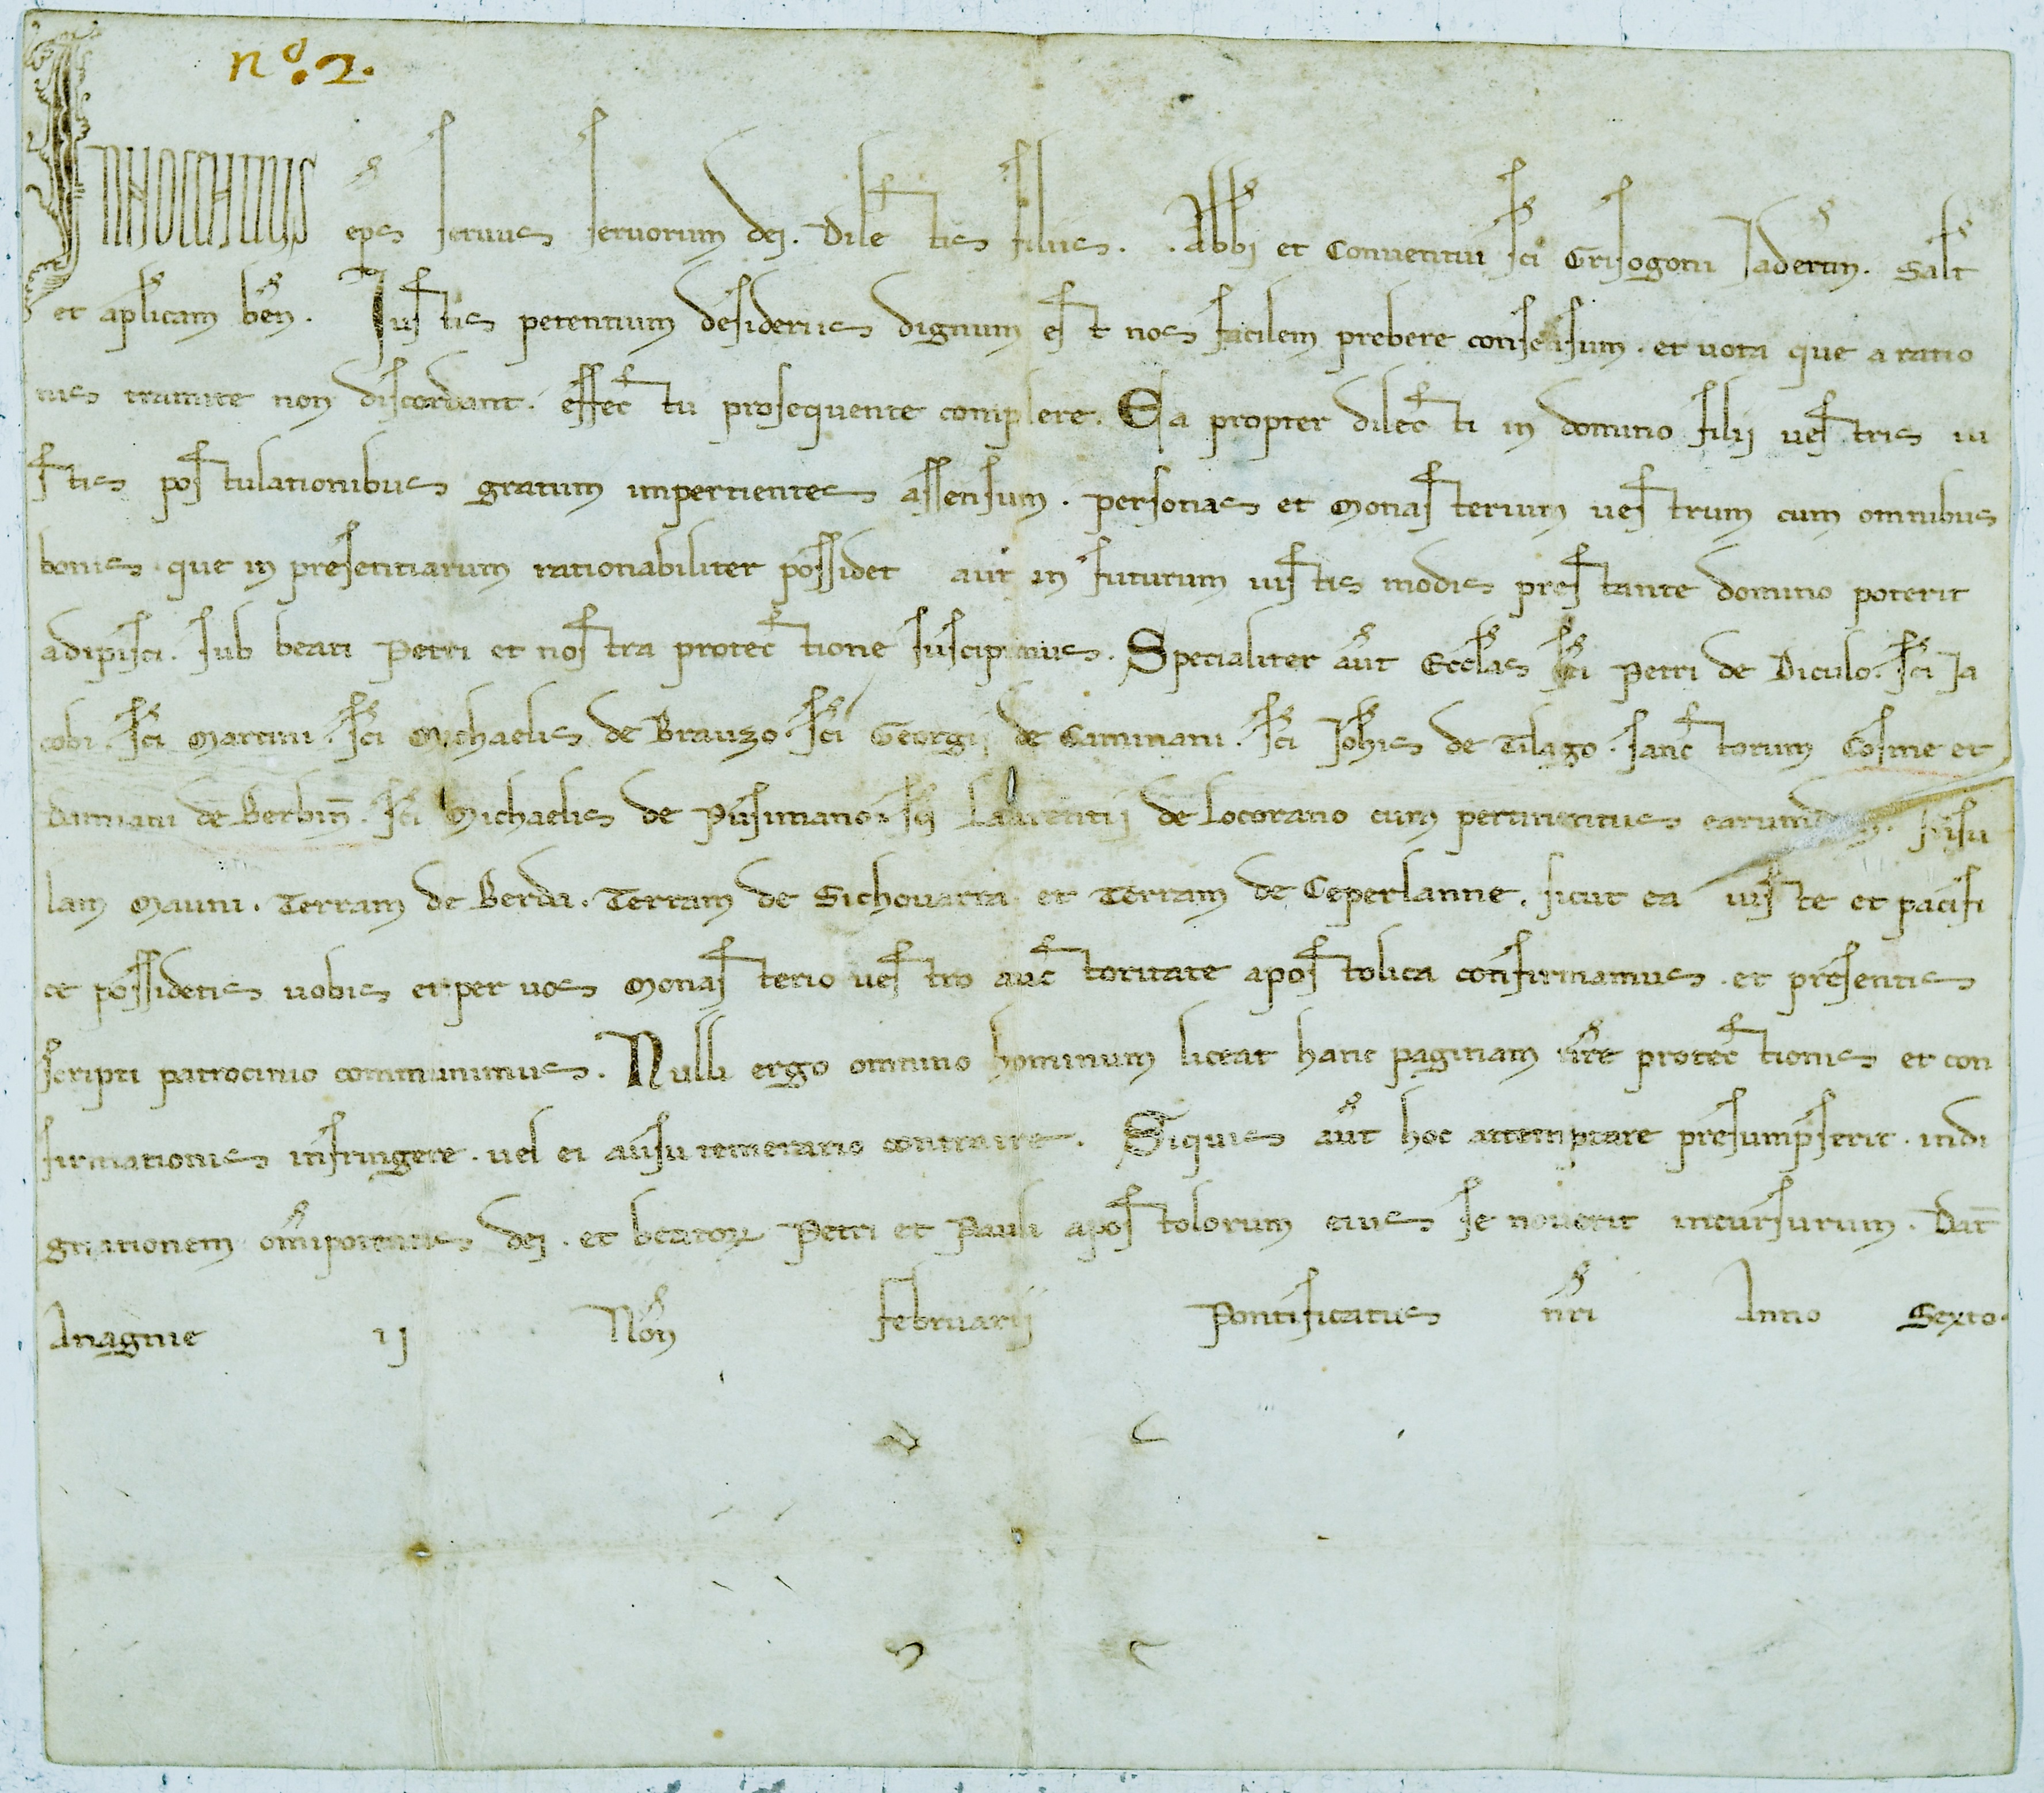 nº. 2.
INNOCENTIUS ep̄s servus servorum dei. Dilectis filiis. . Abb̄i et Conventui sc̄i Grisogoni Jadertin̄. Salt̄
et ap̄licam ben̄. Justis petentium desideriis dignum est nos facilem prebere consensum. et vota que a ratio
nis tramite non discordant. effectu prosequente complere. Ea propter dilecti in domino filii vestris iu
stis postulationibus gratum impertientes assensum. personas et Monasterium vestrum cum omnibus
bonis que in presentiarum rationabiliter possidet aut in futurum iustis modis prestante domino poterit
adipisci. sub beati Petri et nostra protectione suscipimus. Specialiter aūt Eccl̄as sc̄i Petri de Diculo. sc̄i Ja
cobi. sc̄i Martini. sc̄i Michaelis de Brauzo. sc̄i Georgii de Caminani. sc̄i Joh̄is de Tilago. sanctorum Cosme et
Damiani de Berbin̄. sc̄i Michaelis de Pusimano. sc̄i Laurentii de Locorano cum pertinentiis earundem. Insu
lam Mauni. Terram de Berda. Terram de Sichovatta et Terram de Ceperlanne. sicut ea iuste et pacifi
ce possidetis vobis et per vos Monasterio vestro auctoritate apostolica confirmamus. et presentis
scripti patrocinio communimus. Nulli ergo omnino hominum liceat hanc paginam nr̄e protectionis et con
firmationis infringere. vel ei ausu temerario contraire. Siquis aūt hoc attemptare presumpserit. indi
gnationem om̄ipotentis dei. et beatoꝝ Petri et Pauli apostolorum eius se noverit incursurum. Dat̄
Anagnie ij Non̄ februarii Pontificatus nr̄i Anno Sexto.